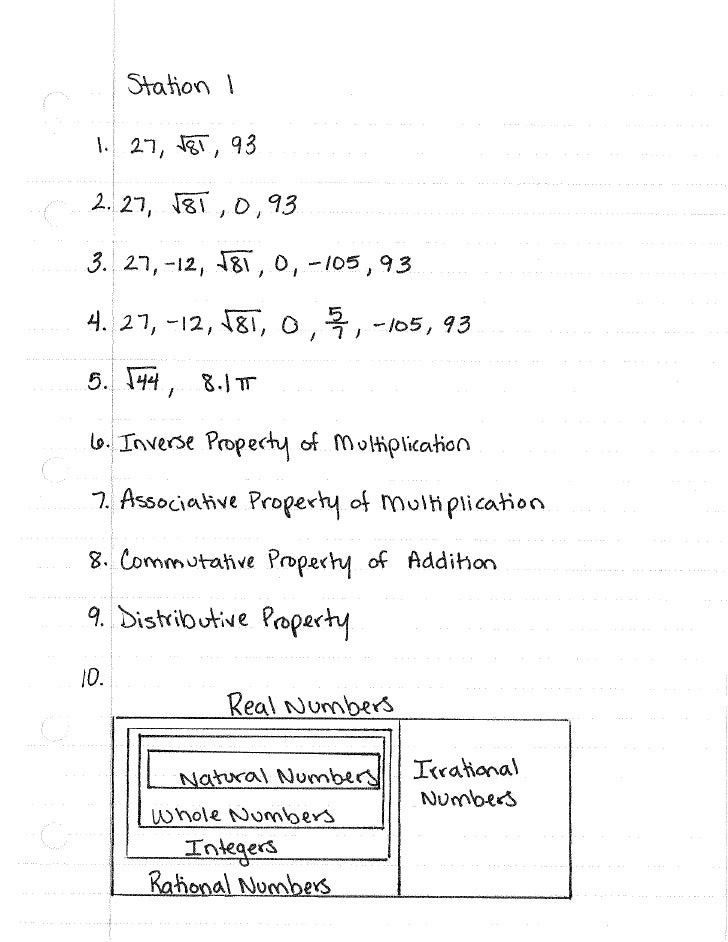 Station 1
1. 27, √81, 93
2. 27, √81, 0, 93
3. 27, -12, √81, 0, -105, 93
4. 27, -12, √81, 0, 5/7, -105, 93
5. √44, 8.1π
6. Inverse Property of Multiplication
7. Associative Property of Multiplication
8. Commutative Property of Addition
9. Distributive Property
10.
Real Numbers
Natural Numbers
Whole Numbers
Integers
Rational Numbers
Irrational
Numbers